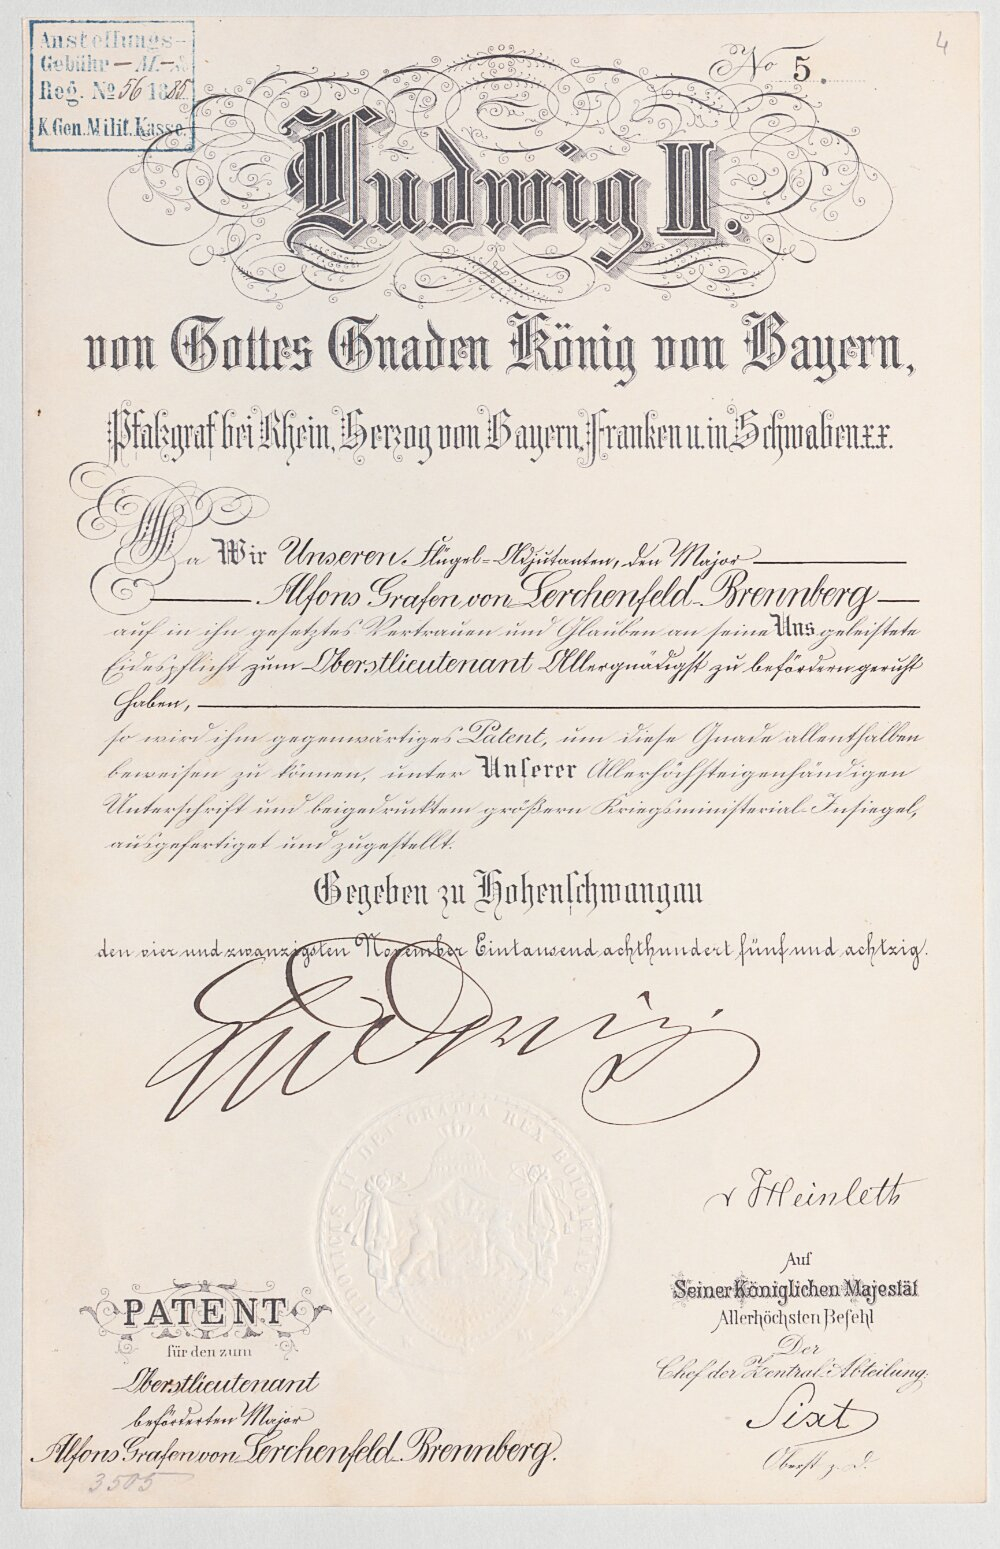 Anstellungs-
Gebühr — M. —
Reg. № 56 1885.
K. Gen. Milit. Kasse.
4
No 5.
Ludwig II.
von Gottes Gnaden König von Bayern,
Pfalzgraf bei Rhein, Herzog von Bayern, Franken u. in Schwaben xx.
Da Wir Unseren Flügel-Adjutanten, den Major
Alfons Grafen von Lerchenfeld-Brennberg
auf in ihn gesetztes Vertrauen und Glauben an seine Uns geleistete
Eidespflicht zum Oberstlieutenant Allergnädigst zu befördern geruht
haben,
so wird ihm gegenwärtiges Patent, um diese Gnade allenthalben
beweisen zu können, unter Unserer Allerhöchsteigenhändigen
Unterschrift und beigedrucktem größern Kriegsministerial-Insiegel,
ausgefertiget und zugestellt.
Gegeben zu Hohenschwangau
den vier und zwanzigsten November Eintausend achthundert fünf und achtzig.
Ludwig
LUDOVICUS II DEI GRATIA REX BOIOARIAE
v Heinleth
Auf
Seiner Königlichen Majestät
Allerhöchsten Befehl
Der
Chef der Zentral-Abteilung:
Sixt
Oberst z. D.
PATENT
für den zum
Oberstlieutenant
beförderten Major
Alfons Grafen von Lerchenfeld-Brennberg.
3505